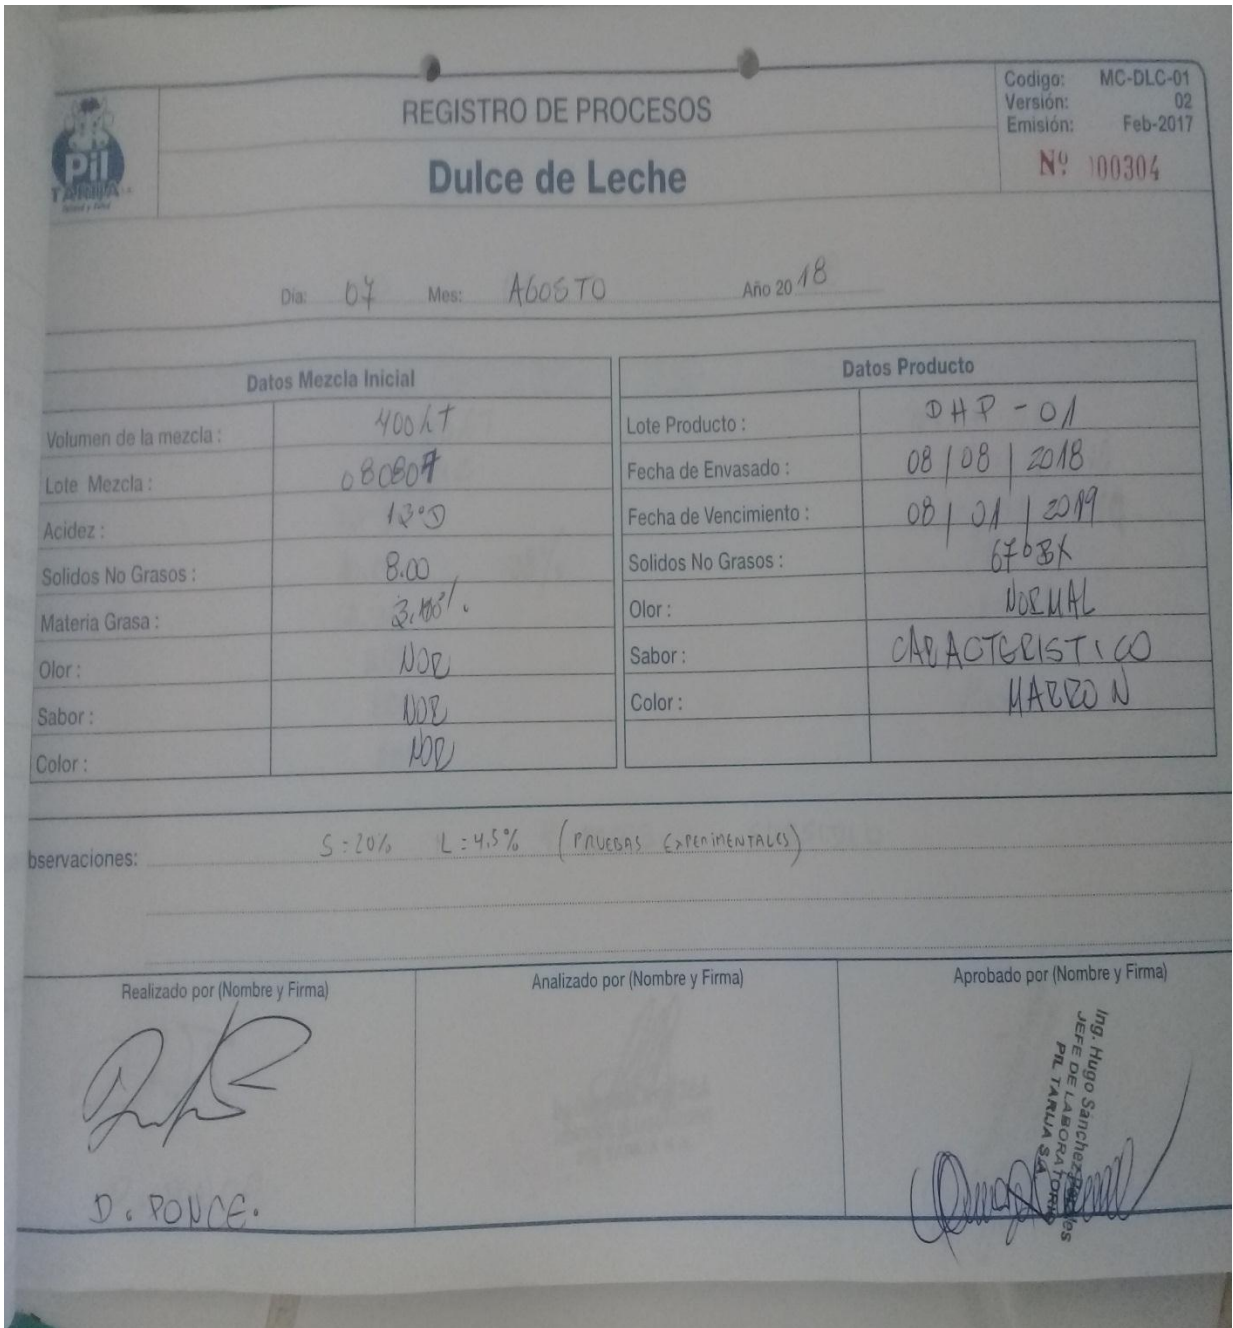 Codigo: MC-DLC-01
Versión: 02
Emisión: Feb-2017
Nº 00304
Pil
TARIJA S.A.
REGISTRO DE PROCESOS
Dulce de Leche
Día: 07 Mes: AGOSTO Año 2018
Datos Mezcla Inicial
Volumen de la mezcla : 400 LT
Lote Mezcla : 080807
Acidez : 13°D
Solidos No Grasos : 8.00
Materia Grasa :
Olor : NOR
Sabor : NOR
Color : NOR
Datos Producto
Lote Producto : DHP - 01
Fecha de Envasado : 08 / 08 / 2018
Fecha de Vencimiento : 08 / 01 / 2019
Solidos No Grasos : 67°BX
Olor : NORMAL
Sabor : CARACTERISTICO
Color : MARRON
bservaciones: S:20% L:4.5% (PRUEBAS EXPERIMENTALES)
Realizado por (Nombre y Firma)
D. PONCE.
Analizado por (Nombre y Firma)
Aprobado por (Nombre y Firma)
Ing. Hugo Sánchez
JEFE DE LABORATORIO
PIL TARIJA SA